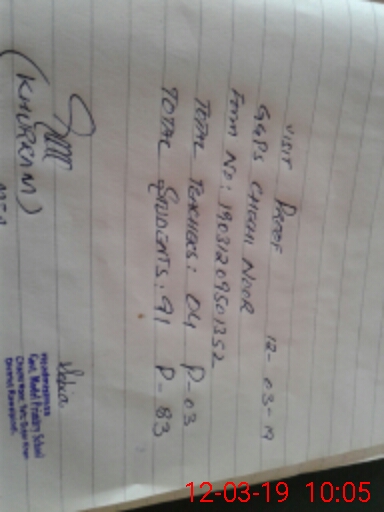 VISIT PROOF 12-03-19
GGPS CHIGHI NOOR
Form No: 19031209501352
TOTAL TEACHERS: 04 P-03
TOTAL STUDENTS: 91 P-83
(KHURRAM)
MEA
Headmistress
Govt. Model Primary School
12-03-19 10:05